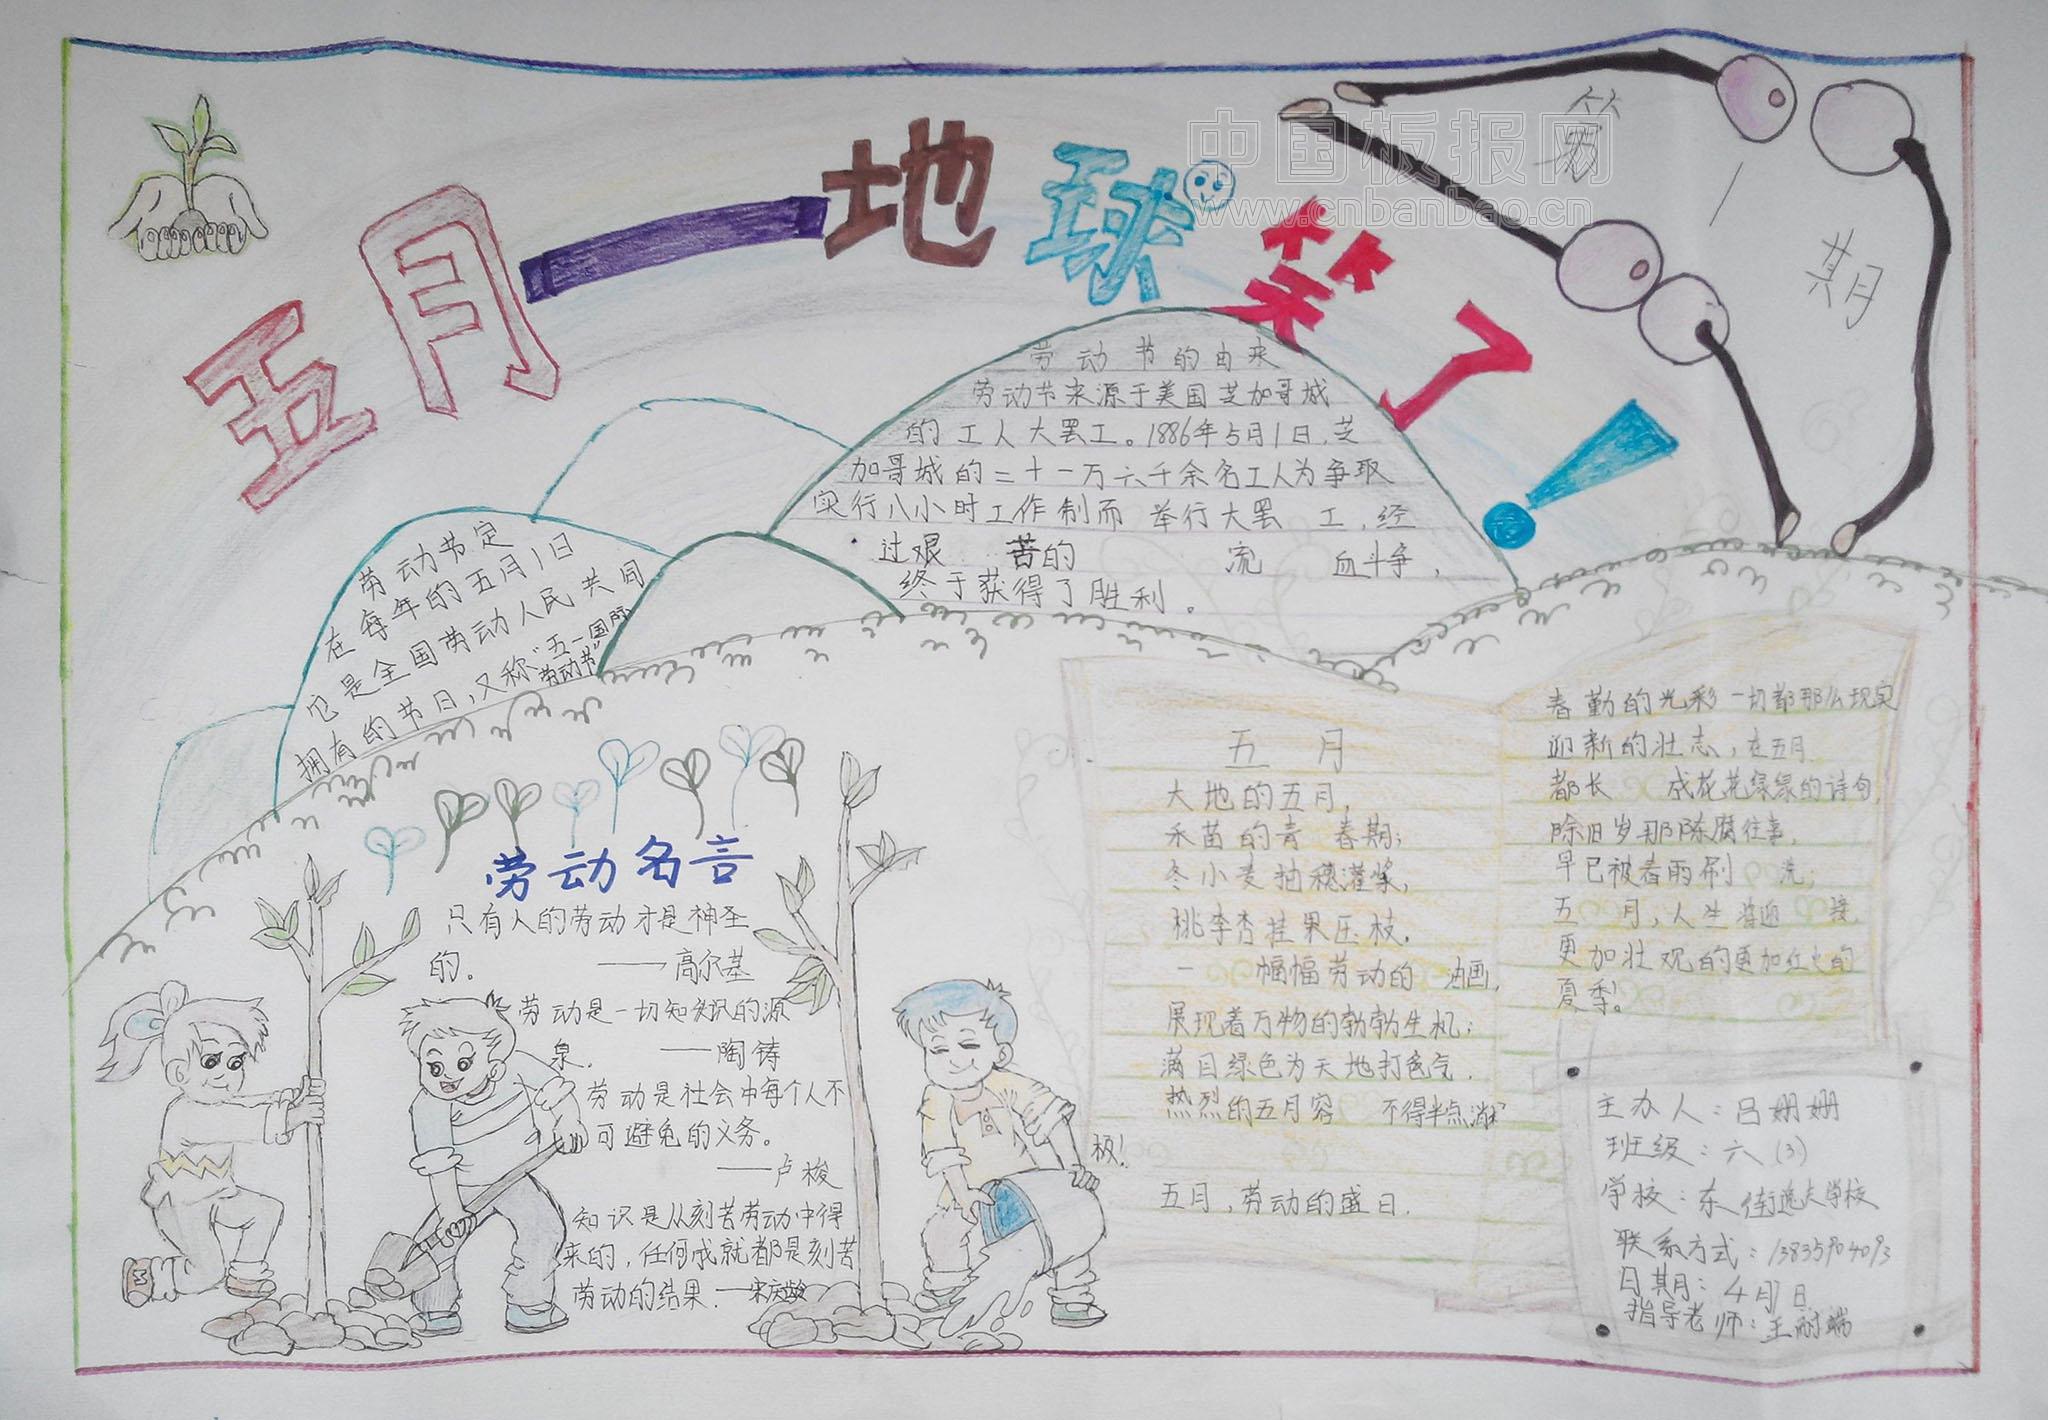 五月一地球笑了!
第一期
中国板报网
www.cnbanbao.cn
劳动节的由来
劳动节来源于美国芝加哥城
的工人大罢工。1886年5月1日,芝
加哥城的二十一万六千余名工人为争取
实行八小时工作制而举行大罢 工,经
过艰 苦的 流 血斗争,
终于获得了胜利。
劳动节定
在每年的五月1日
它是全国劳动人民共同
拥有的节日,又称“五一国际
劳动节”
劳动名言
只有人的劳动才是神圣
的.
——高尔基
劳动是一切知识的源
泉. ——陶铸
劳动是社会中每个人不
可避免的义务。
——卢梭
知识是从刻苦劳动中得
来的,任何成就都是刻苦
劳动的结果.——宋庆龄
五 月
大地的五月,
禾苗的青 春期;
冬小麦抽穗灌浆,
桃李杏挂果压枝.
一 幅幅劳动的 油画,
展现着万物的勃勃生机;
满目绿色为天地打
热烈的五月容 不得半点消
极!
五月,劳动的盛日.
春勤的光彩一切都那么现实
迎新的壮志,在五月
都长 成花花绿绿的诗句,
除旧岁那陈腐往事,
早已被春雨刷 洗;
五 月,人生 迎 接
更加壮观的更加红火的
夏季。
主办人:吕姗姗
班级:六(3)
学校:东街逸夫学校
联系方式:13835904093
日期:4月 日
指导老师:王耐端